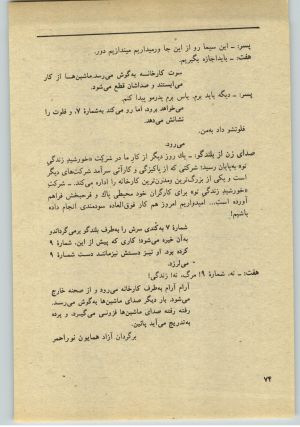 پسر: ـ این سیما رو از این جا ورمیداریم میندازیم دور.
هفت: ـ بایداجازه بگیریم.
سوت کارخانه به‌گوش می‌رسد.ماشین‌ها از کار
می‌ایستند و صداشان قطع می‌شود.
پسر: ـ دیگه باید برم. باس برم پدرمو پیدا کنم.
می‌خواهد برود، اما رو می‌کند به‌شمارهٔ ۷، و فلوت را
نشانش می‌دهد.
فلوتشو داد به‌من.
می‌رود.
صدای زن از بلندگو: ـ یك روز دیگر از کار ما در شرکت «خورشید زندگی
نو» به‌پایان رسید؛ شرکتی که از پاکیزگی و کارآئی سرآمد شرکت‌های دیگر
است و یکی از بزرگ‌ترین ومدرن‌ترین کارخانه را اداره می‌کند. ـ شرکت
«خورشید زندگی نو» برای کارگران خود محیطی پاك و فرحبخش فراهم
آورده است... امیدواریم امروز هم کار فوق‌العاده سودمندی انجام داده
باشیم!
شمارهٔ ۷ به‌کندی سرش را به‌طرف بلندگو برمی‌گرداندو
به‌آن خیره می‌شود؛ کاری که پیش از این، شمارهٔ ۹
کرده بود. او نیز دستش نیزمانند دست شمارهٔ ۹
می‌لرزد.
هفت: ـ نه، شمارهٔ ۹! مرگ، نه! زندگی!
آرام آرام به‌طرف کارخانه می‌رود و از صحنه خارج
می‌شود. بار دیگر صدای ماشین‌ها به‌گوش می‌رسد.
رفته رفته صدای ماشین‌ها فزونی می‌گیرد، و پرده
به‌تدریج می‌آید پائین.
برگردان آزاد همایون نوراحمر
۷۴